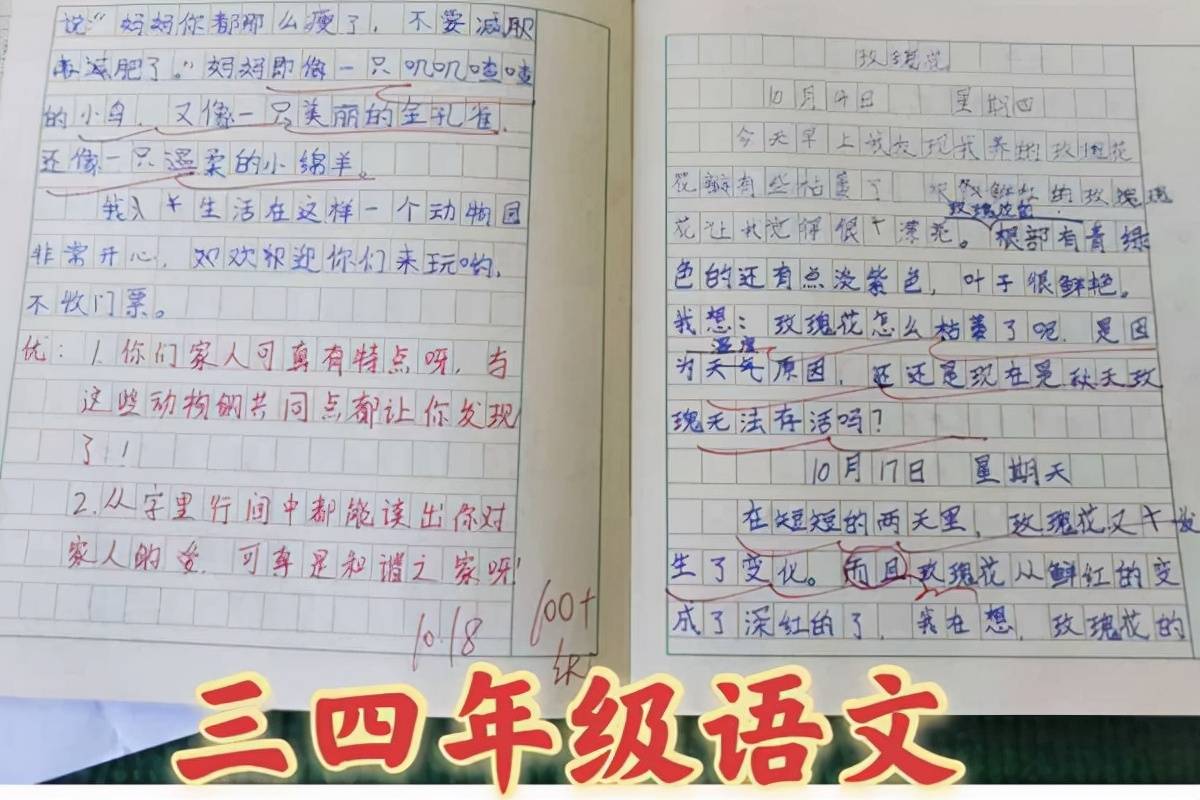 说“妈妈你都那么瘦了，不要减肥
再减肥了。”妈妈即像一只叽叽喳喳
的小鸟，又像一只美丽的金孔雀，
还像一只温柔的小绵羊。
我生活在这样一个动物园
非常开心，欢迎你们来玩哟，
不收门票。
优：1.你们家人可真有特点呀，与
这些动物的共同点都让你发现
了！
2.从字里行间中都能读出你对
家人的爱，可真是和谐之家呀！
10.18
100+
玫瑰花
10月14日 星期四
今天早上我发现我养的玫瑰花
花瓣有些枯萎了 的玫瑰
玫瑰花的
花让我觉得很漂亮。根部有青绿
色的还有点淡紫色，叶子很鲜艳。
我想：玫瑰花怎么枯萎了呢，是因
温度
为天气原因，还是现在是秋天玫
瑰无法存活吗？
10月17日 星期天
在短短的两天里，玫瑰花又发
生了变化。而且玫瑰花从鲜红的变
成了深红的了，我在想，玫瑰花的
三四年级语文